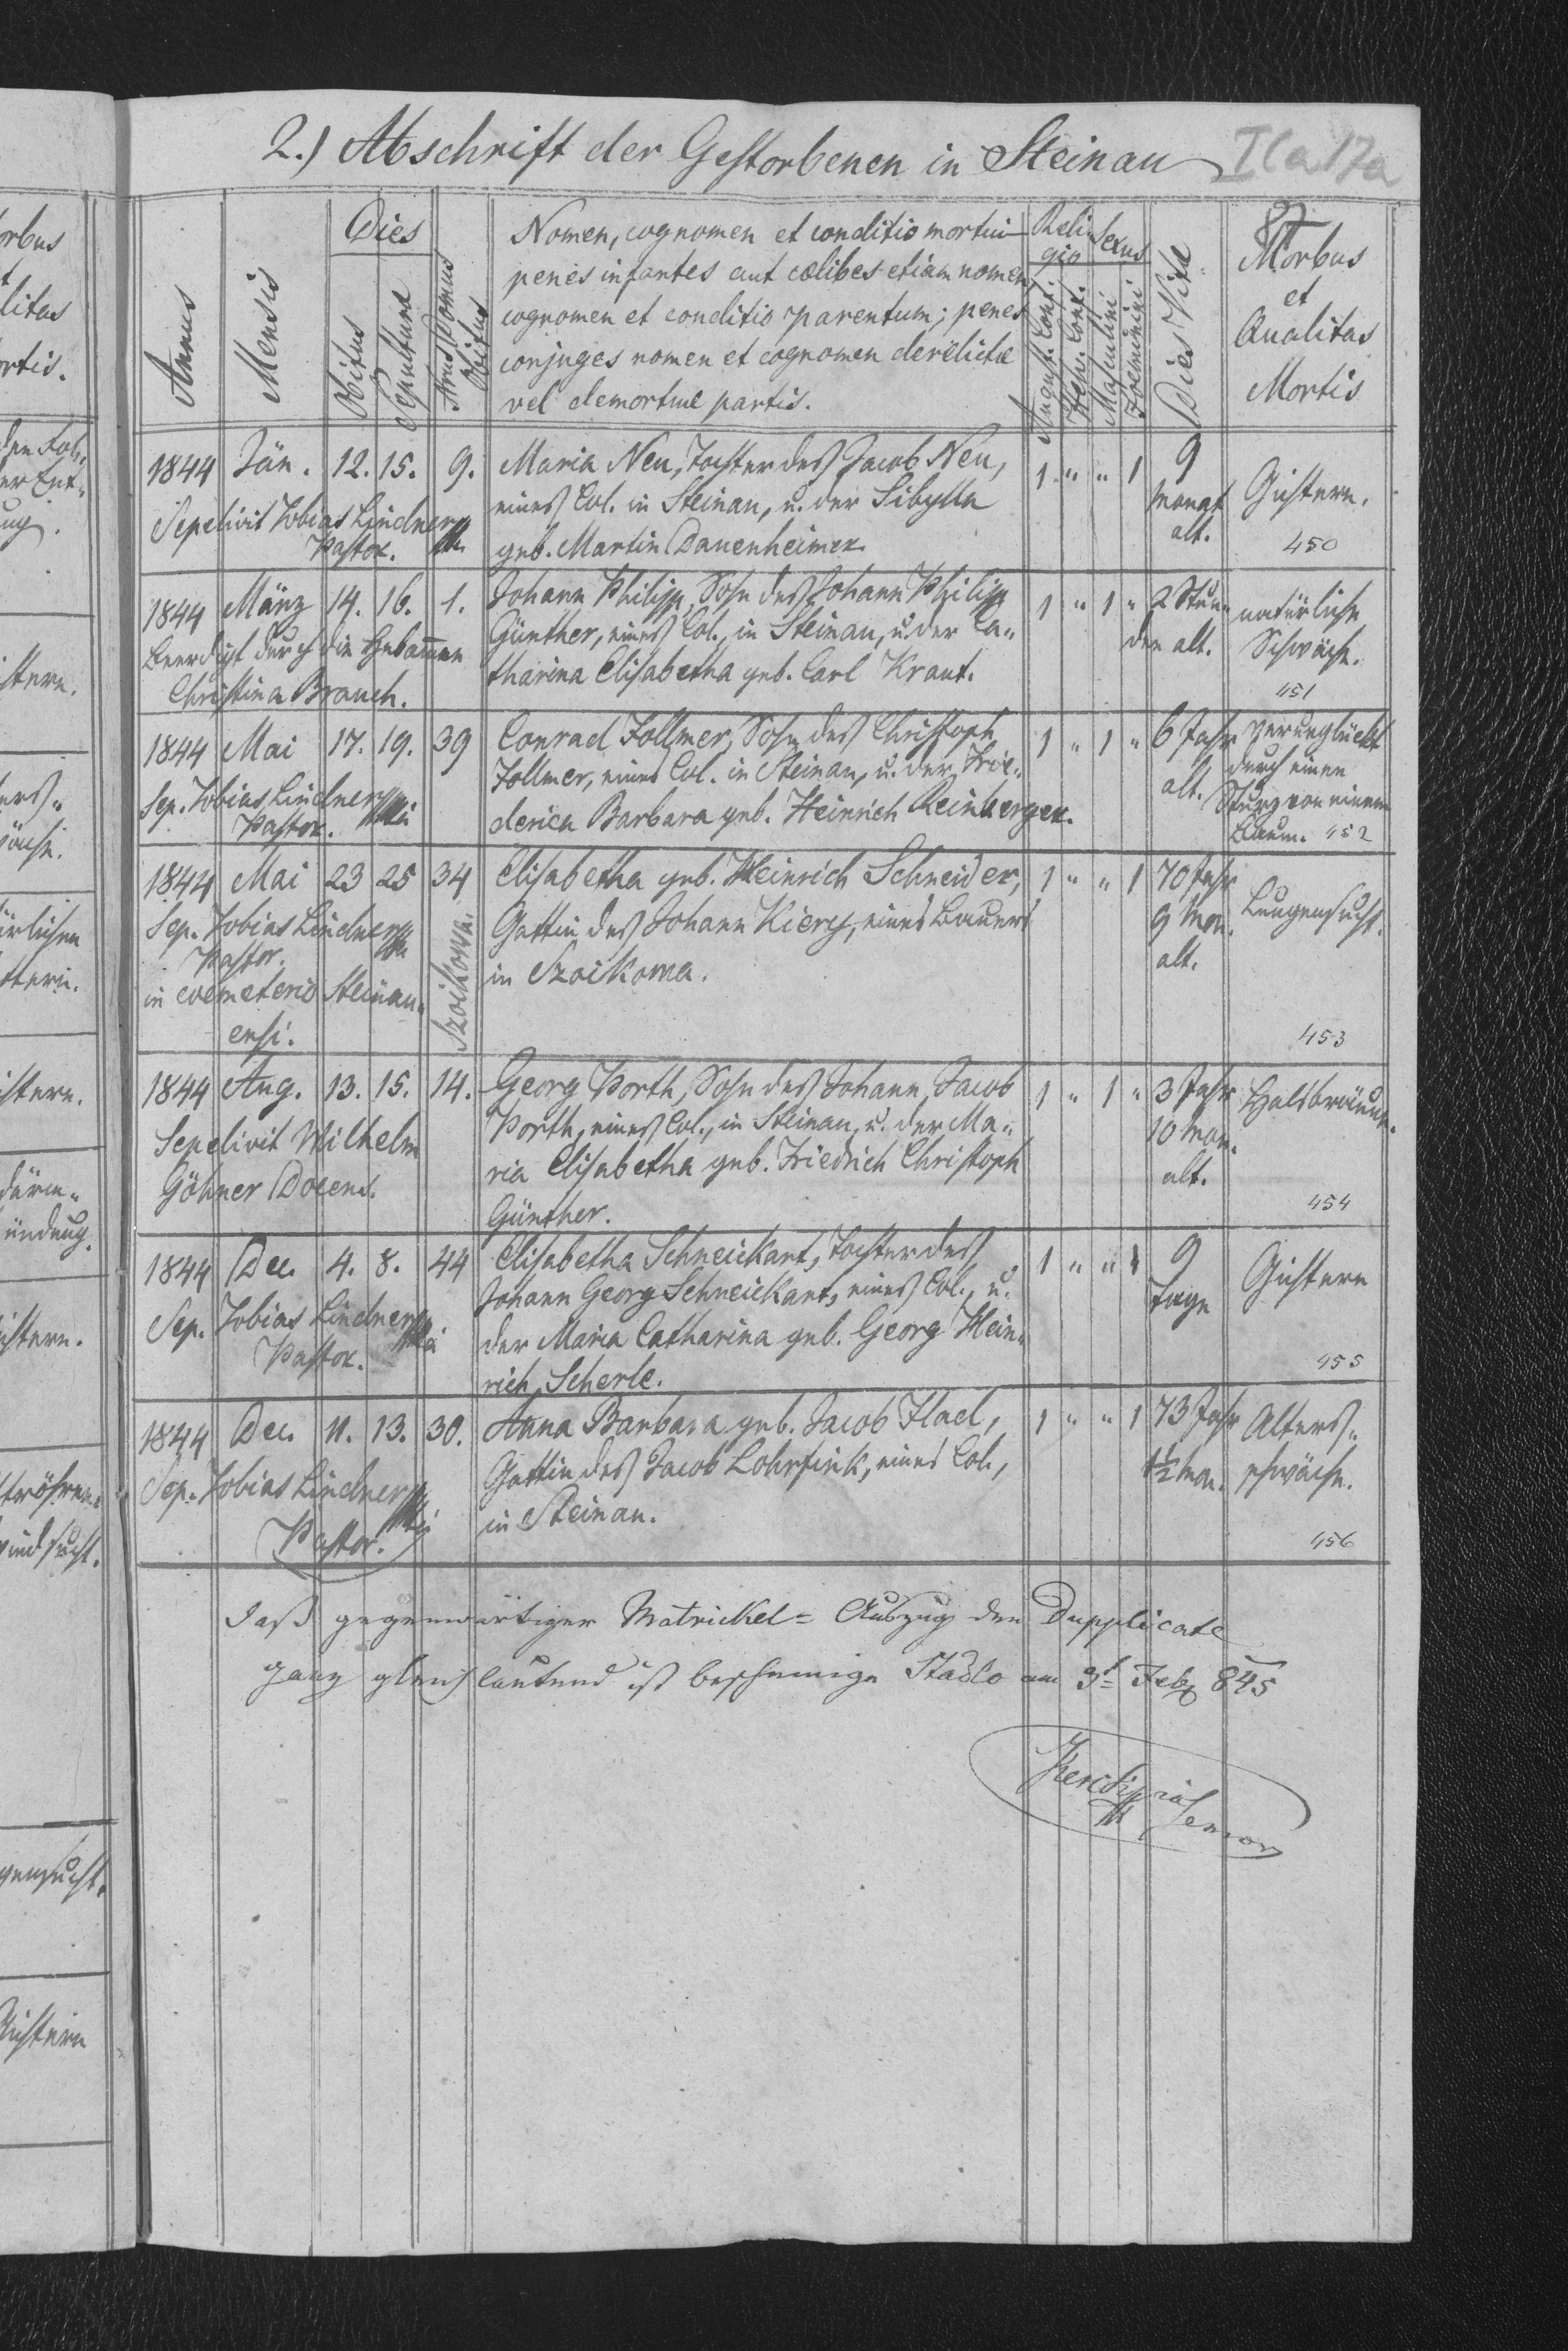 2.) Abschrift der Gestorbenen in Steinau
Annus
Mensis
Dies
Obitus
Sepulturae
Nrus Domus Obitus
Nomen, cognomen et conditio mortui
penes infantes aut coelibes etiam nomen,
cognomen et conditio parentum; penes
conjuges nomen et cognomen derelictae
vel demortuae partis.
Reli-
gio
August. Conf.
Helv. Conf.
Sexus
Masculini
Foeminini
Dies Vitae
Morbus
et
Qualitas
Mortis
1844 Jän. 12. 15. 9. Maria Neu, Tochter deß Jacob Neu, 1 " " 1 9
eineß Col. in Steinau, u. der Sibylla Monat Gichtern.
Sepelivit Tobias Lindner
Pastor. geb. Martin Dauenheimer. alt. 450
1844 März 14. 16. 1. Johann Philipp, Sohn deß Johann Philipp 1 " 1 " 2 Stun- natürliche
Günther, eineß Col., in Steinau, u. der Ca- den alt. Schwäche.
Beerdigt durch die Hebamme
Christina Brauch. tharina Elisabetha geb. Carl Kraut. 451
1844 Mai 17. 19. 39 Conrad Follmer, Sohn deß Christoph 1 " 1 " 6 Jahr verunglückt
Follmer, eines Col. in Steinau, u. der Frie- alt. durch einen
Sep. Tobias Lindner
Pastor. derica Barbara geb. Heinrich Reinberger. Sturz von einem
Baum. 452
1844 Mai 23 25 34 Elisabetha geb. Heinrich Schneider, 1 " " 1 70 Jahr
Sep. Tobias Lindner Gattin deß Johann Kiery, eines Bauers 9 Mon. Lungensucht.
Pastor. Szoikowa. in Szoikowa. alt.
in coemeterio Steinau-
ensi. 453
1844 Aug. 13. 15. 14. Georg Porth, Sohn deß Johann Jacob 1 " 1 " 3 Jahr Halsbräune.
Sepelivit Wilhelm Porth, eineß Col., in Steinau, u. der Ma- 10 Mon.
Göhner Docens. ria Elisabetha geb. Friedrich Christoph alt.
Günther. 454
1844 Dec. 4. 8. 44 Elisabetha Schneickart, Tochter deß 1 " " 1 9 Gichtern
Johann Georg Schneickart, eineß Col., u. Tage
Sep. Tobias Lindner
Pastor. der Maria Catharina geb. Georg Hein-
rich Scherle. 455
1844 Dec. 11. 13. 30. Anna Barbara geb. Jacob Flad, 1 " " 1 73 Jahr Alters-
Sep. Tobias Lindner Gattin deß Jacob Lohrfink, eines Col., 1½ Mon. schwäche.
Pastor. in Steinau. 456
daß gegenwärtiger Matrickel-Auszug den Dupplicate
ganz gleich lautend ist bescheinige Stadlo am 3t Feb 845
Senior